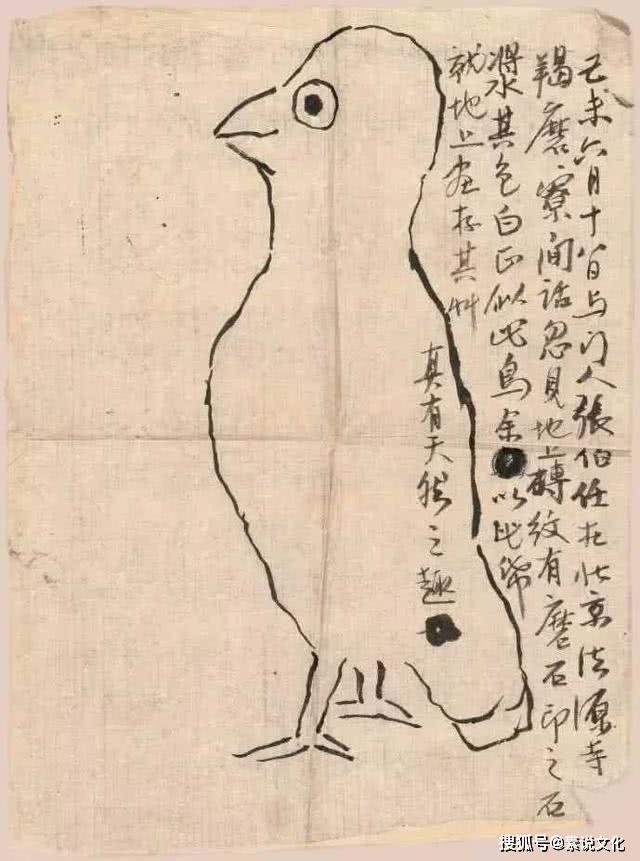 己未六月十八日与门人張伯任在北京法源寺
羯磨寮間話忽見地上磚紋有磨石印之石
漿其色白正似此鳥余以此帋
就地上畫存其艸
真有天然之趣
搜狐号@素说文化